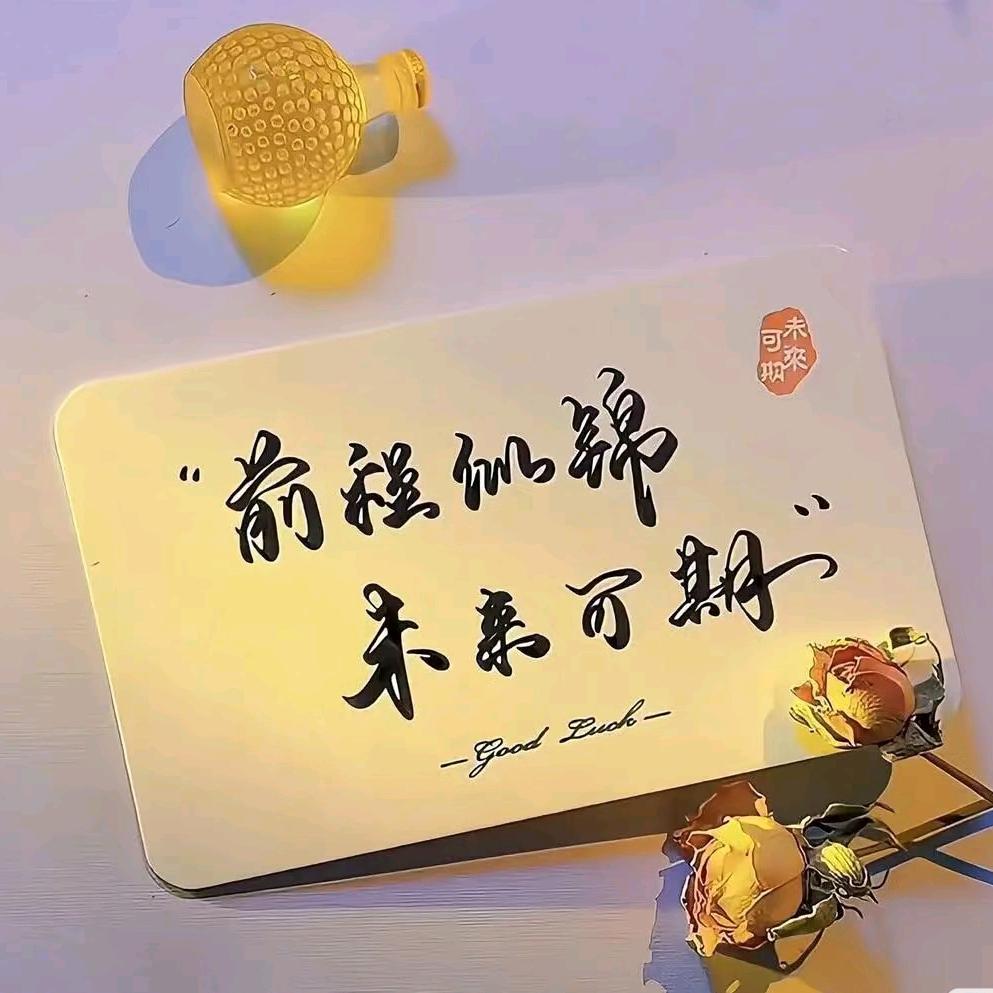 未來可期
“前程似锦
未来可期”
-Good Luck-